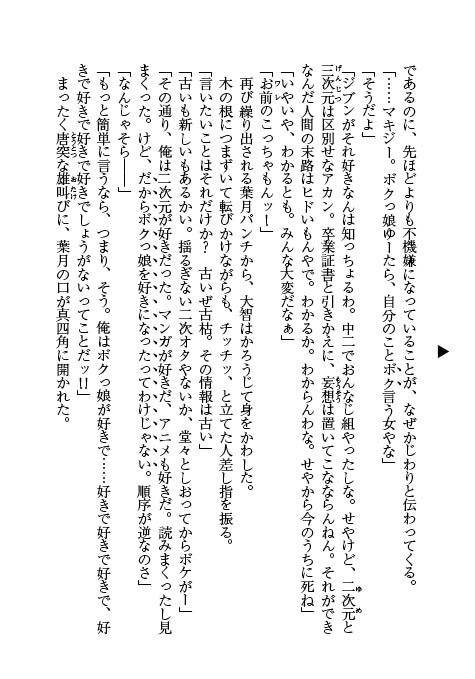 であるのに、先ほどよりも不機嫌になっていることが、なぜかじわりと伝わってくる。
「……マキジー。ボクっ娘ゆーたら、自分のことボク言う女やな」
「そうだよ」
「ジブンがそれ好きなんは知っちょるわ。中二でおんなじ組やったしな。せやけど、二次元と
三次元は区別せなアカン。卒業証書と引きかえに、妄想は置いてこなならんねん。それができ
なんだ人間の末路はヒドいもんやで。わかるか。わからんわな。せやから今のうちに死ね」
「いやいや、わかるとも。みんな大変だなぁ」
「お前のこっちゃもんッ！」
再び繰り出される葉月パンチから、大智はかろうじて身をかわした。
木の根につまずいて転びかけながらも、チッチッ、と立てた人差し指を振る。
「言いたいことはそれだけか？　古いぜ古枯。その情報は古い」
「古いも新しいもあるかい。揺るぎない二次オタやないか、堂々としおってからボケがー」
「その通り、俺は二次元が好きだった。マンガが好きだ、アニメも好きだ。読みまくったし見
まくった。けど、だからボクっ娘を好きになったってわけじゃない。順序が逆なのさ」
「なんじゃそら――」
「もっと簡単に言うなら、つまり、そう。俺はボクっ娘が好きで……好きで好きで好きで、好
きで好きで好きで好きでしょうがないってことだッ!!」
まったく唐突な雄叫びに、葉月の口が真四角に開かれた。